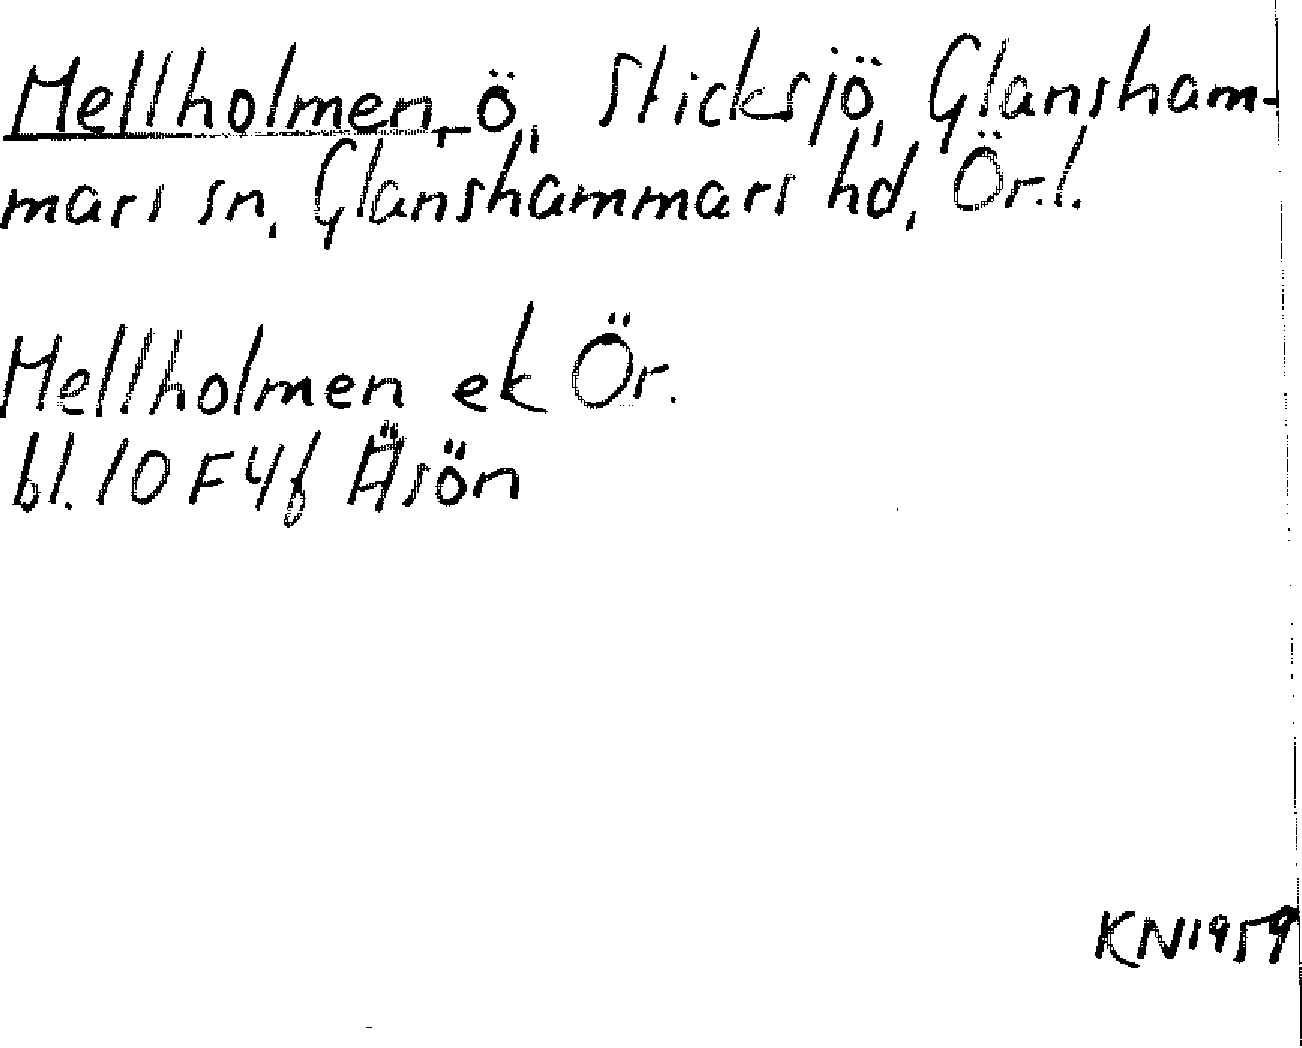 Mellholmen, ö, Sticksjö, Glansham-
mars sn, Glanshammars hd, Ör.l.
Mellholmen ek Ör.
bl. 10 F 4f Äsön
KN 1959